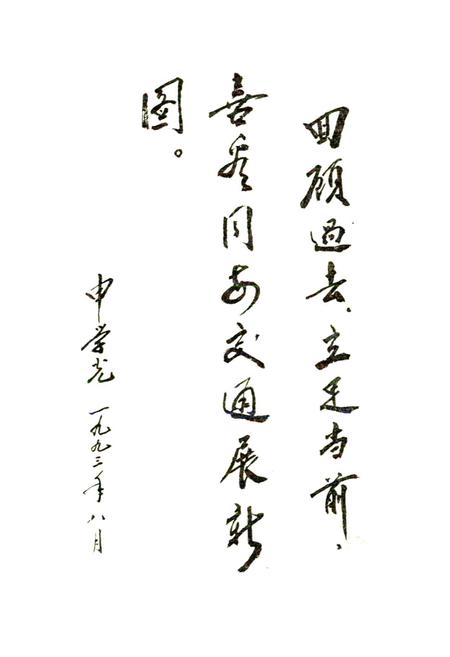 回顾过去、立足当前、
喜看同安交通展新
图。
申学光
一九九三年八月